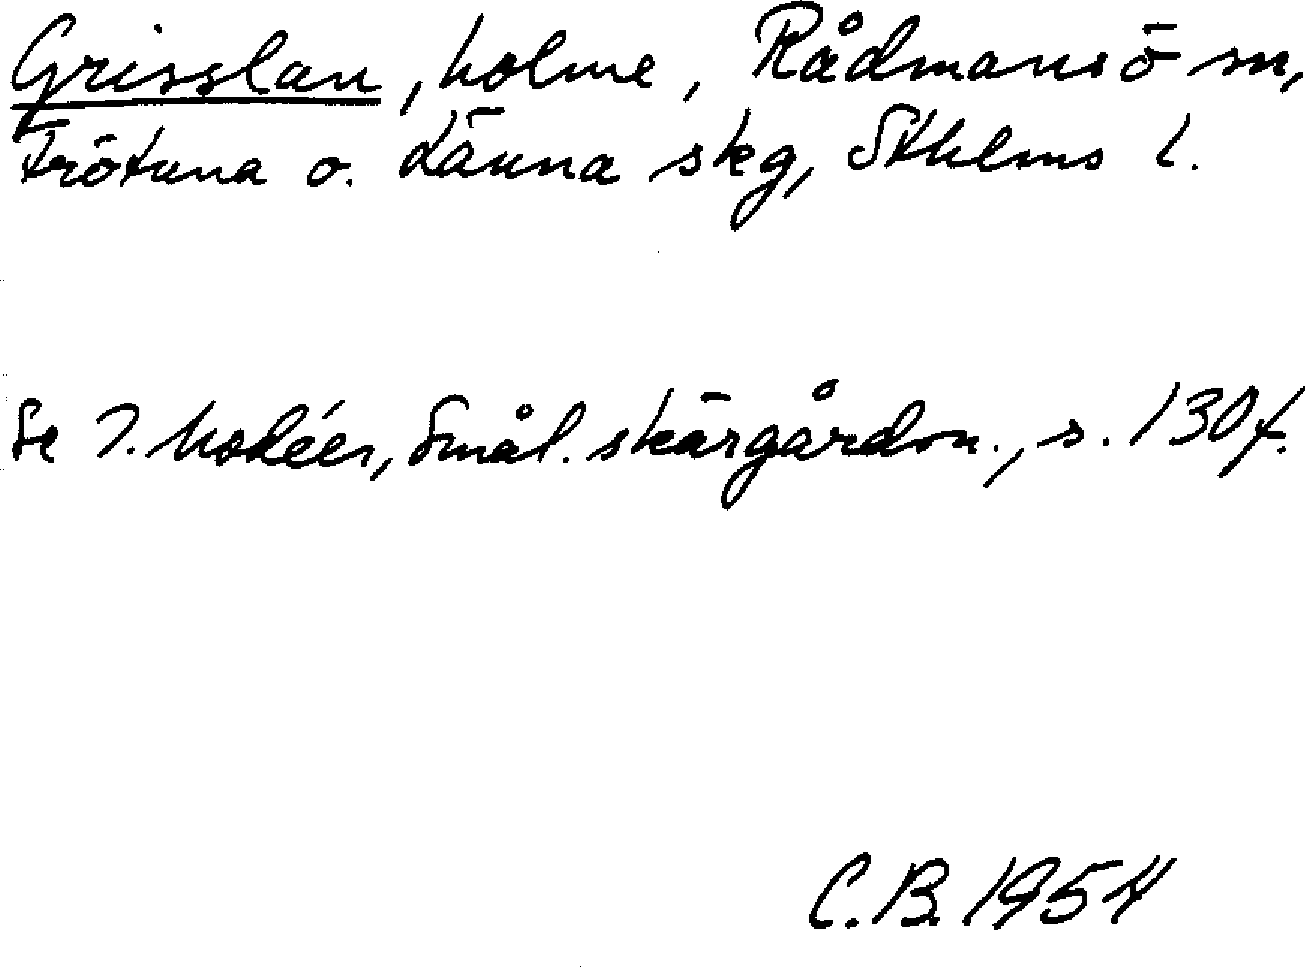 Grisslan, holme, Rådmansö sn,
Frötuna o. Länna skg, Sthlms l.
Se I. Modéer, Smål. skärgårdsn., s. 130 f.
C.B. 1954